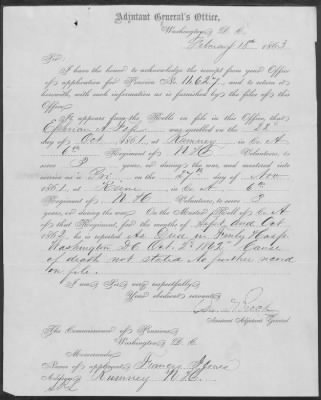 Adjutant General's Office,
Washington, D. C.
February 18th 1863
Sir:
I have the honor to acknowledge the receipt from your Office
of application for Pension No. 11,627, and to return it
herewith, with such information as is furnished by the files of this
Office.
It appears from the Rolls on file in this Office, that
Ephraim A. was enrolled on the 22d
day of Oct. 1861, at Rumney in Co. A
6th Regiment of N. H. Volunteers, to
serve 3 years, or during the war, and mustered into
service as a Pri on the 27th day of Nov
1861, at Keene in Co. A 6th
Regiment of N. H. Volunteers, to serve 3
years, or during the war. On the Muster Roll of Co. A
of that Regiment, for the months of Sept. and Oct.
1862, he is reported as "Died in Hosp.
Washington D.C. Oct. 2d 1862" Cause
of death not stated. No further record
on file.
I am, Sir, very respectfully,
Your obedient servant,
Assistant Adjutant General
The Commissioner of Pensions,
Washington, D. C.
Memoranda:
Name of applicant,
Address, Rumney N.H.